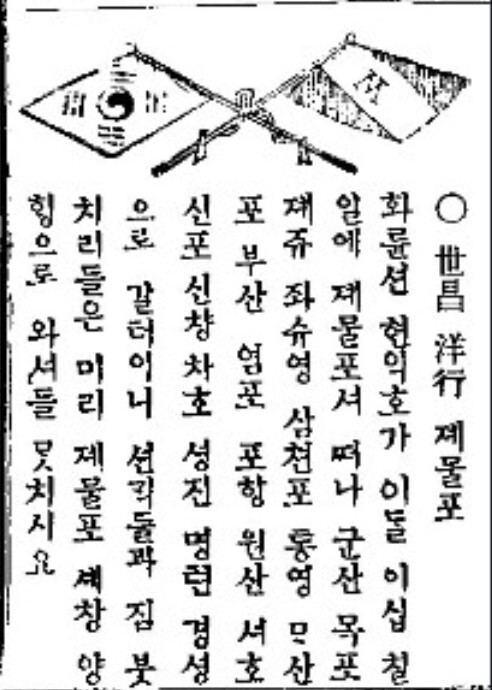 M
○ 世昌 洋行 졔물포
화륜션 현익호가 이ᄃᆞᆯ 이십 칠
일에 졔물포셔 떠나 군산 목포
졔쥬 좌슈영 삼쳔포 통영 ᄆᆞ산
포 부산 염포 포항 원산 셔호
신포 신창 차호 셩진 명련 경셩
으로 갈터이니 션ᄀᆡᆨ들과 짐 붓
치리들은 미리 졔물포 셰창 양
힝으로 와셔들 뭇치시요